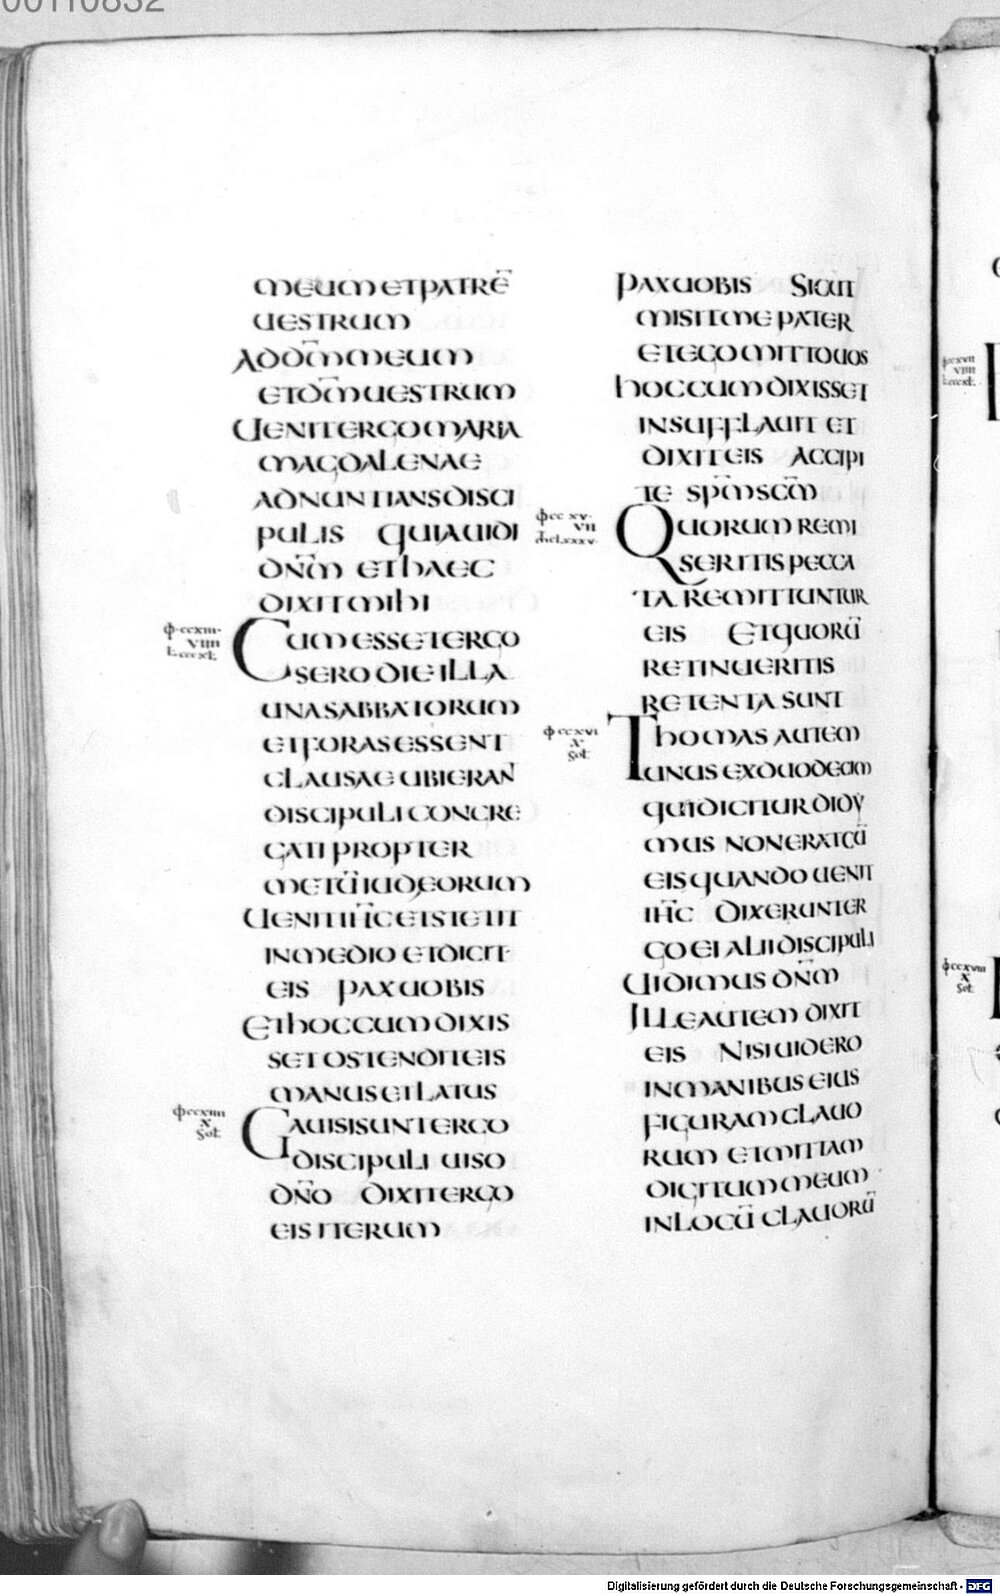 00110832
MEUM ET PATRE̅
UESTRUM
AD DM̅ MEUM
ET DM̅ UESTRUM
UENIT ERGO MARIA
MAGDALENAE
ADNUNTIANS DISCI
PULIS QUIA UIDI
DNM̅ ET HAEC
DIXIT MIHI
CUM ESSET ERGO
SERO DIE ILLA
UNA SABBATORUM
ET FORAS ESSENT
CLAUSAE UBI ERAN̅
DISCIPULI CONGRE
GATI PROPTER
METU̅ IUDEORUM
UENIT IH̅C ET STETIT
IN MEDIO ET DICIT
EIS PAX UOBIS
ET HOC CUM DIXIS
SET OSTENDIT EIS
MANUS ET LATUS
GAUISI SUNT ERGO
DISCIPULI UISO
DN̅O DIXIT ERGO
EIS ITERUM
PAX UOBIS SICUT
MISIT ME PATER
ET EGO MITTO UOS
HOC CUM DIXISSET
INSUFFLAUIT ET
DIXIT EIS ACCIPI
TE SPM̅ SCM̅
QUORUM REMI
SERITIS PECCA
TA REMITTUNTUR
EIS ET QUORU̅
RETINUERITIS
RETENTA SUNT
THOMAS AUTEM
UNUS EX DUODECIM
QUI DICITUR DIDY
MUS NON ERAT CU̅
EIS QUANDO UENIT
IH̅C DIXERUNT ER
GO EI ALII DISCIPULI
UIDIMUS DN̅M
ILLE AUTEM DIXIT
EIS NISI UIDERO
IN MANIBUS EIUS
FIGURAM CLAUO
RUM ET MITTAM
DIGITUM MEUM
IN LOCU̅ CLAUORU̅
ɸ ccxiii
VIIII
L cccxl
ɸ ccxiiii
X
Sol
ɸ ccxv
VII
M clxxxv
ɸ ccxvi
X
Sol
ɸ ccxvii
VIIII
L cccxl
ɸ ccxviii
X
Sol
Digitalisierung gefördert durch die Deutsche Forschungsgemeinschaft - DFG